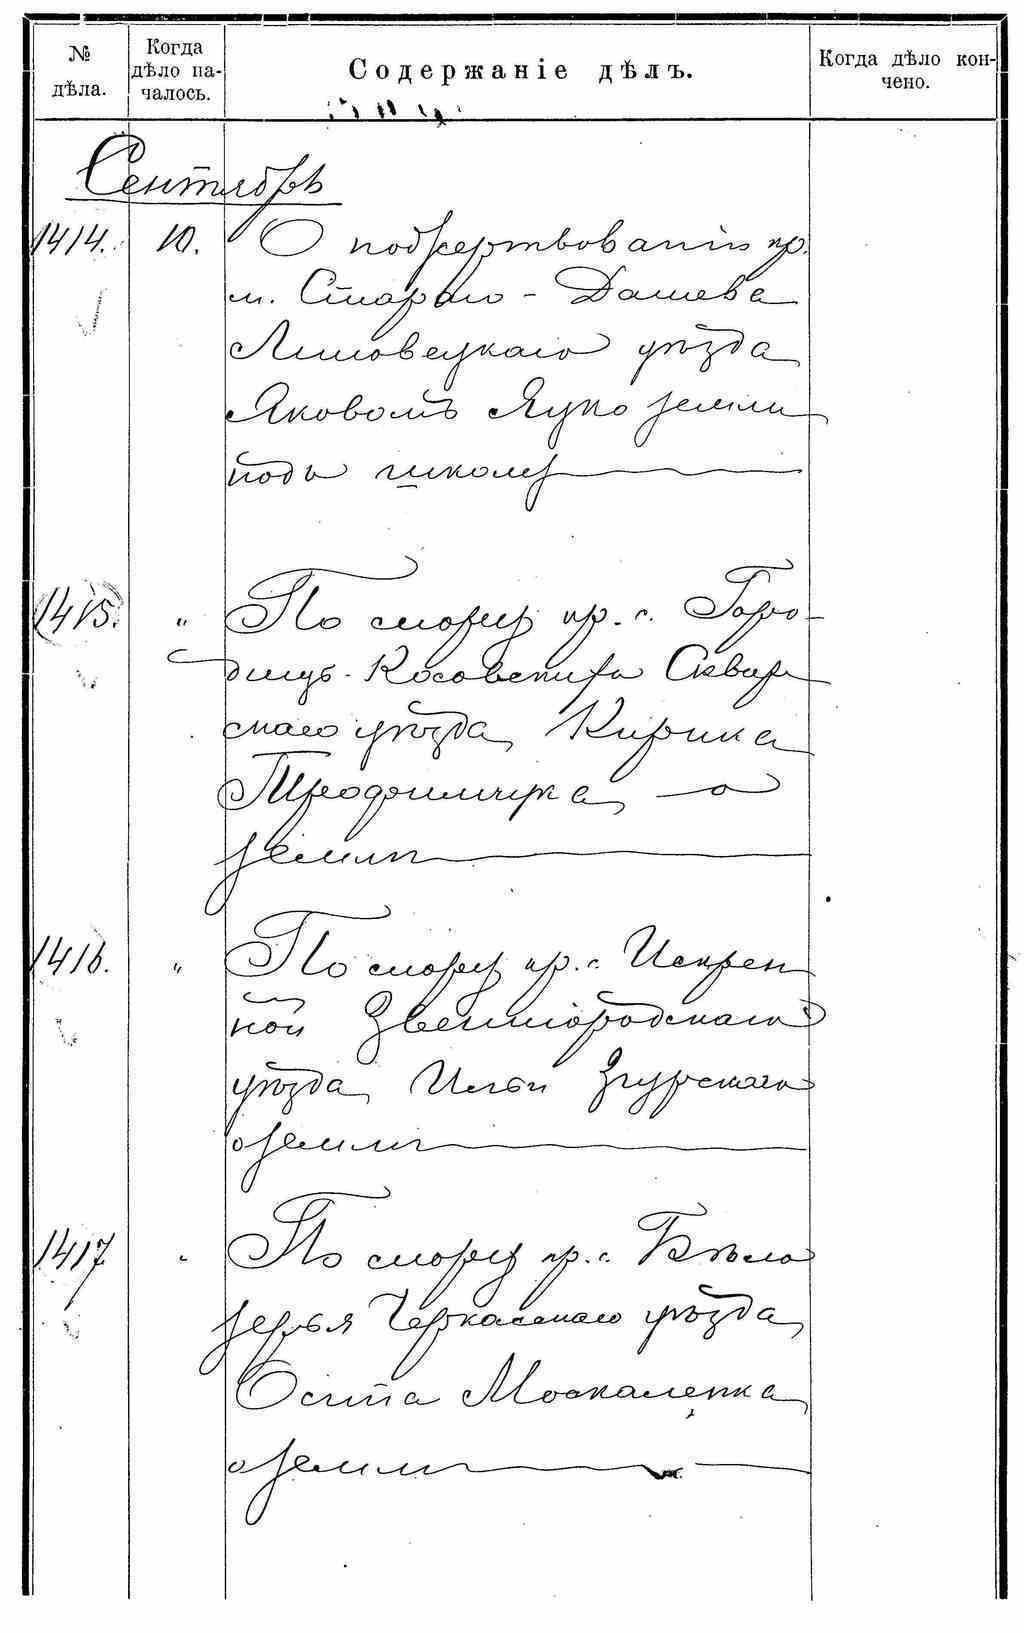 № дѣла. Когда дѣло началось. Содержаніе дѣлъ. Когда дѣло кончено.
Сентябрь
1414. 10. О пожертвованіи кр.
м. Стараго - Дашева
Липовецкаго уѣзда
Яковомъ Яцко земли
подъ школу
1415. „ По спору кр. с. Горо-
дищъ - Косовскихъ Сквир
скаго уѣзда Кирика
Трофимчука о
землѣ
1416. „ По спору кр. с. Искрен
ной Звенигородскаго
уѣзда Ильи Згурскаго
о землѣ
1417 „ По спору кр. с. Бѣло
зерья Черкасскаго уѣзда
Осипа Москаленка
о землѣ